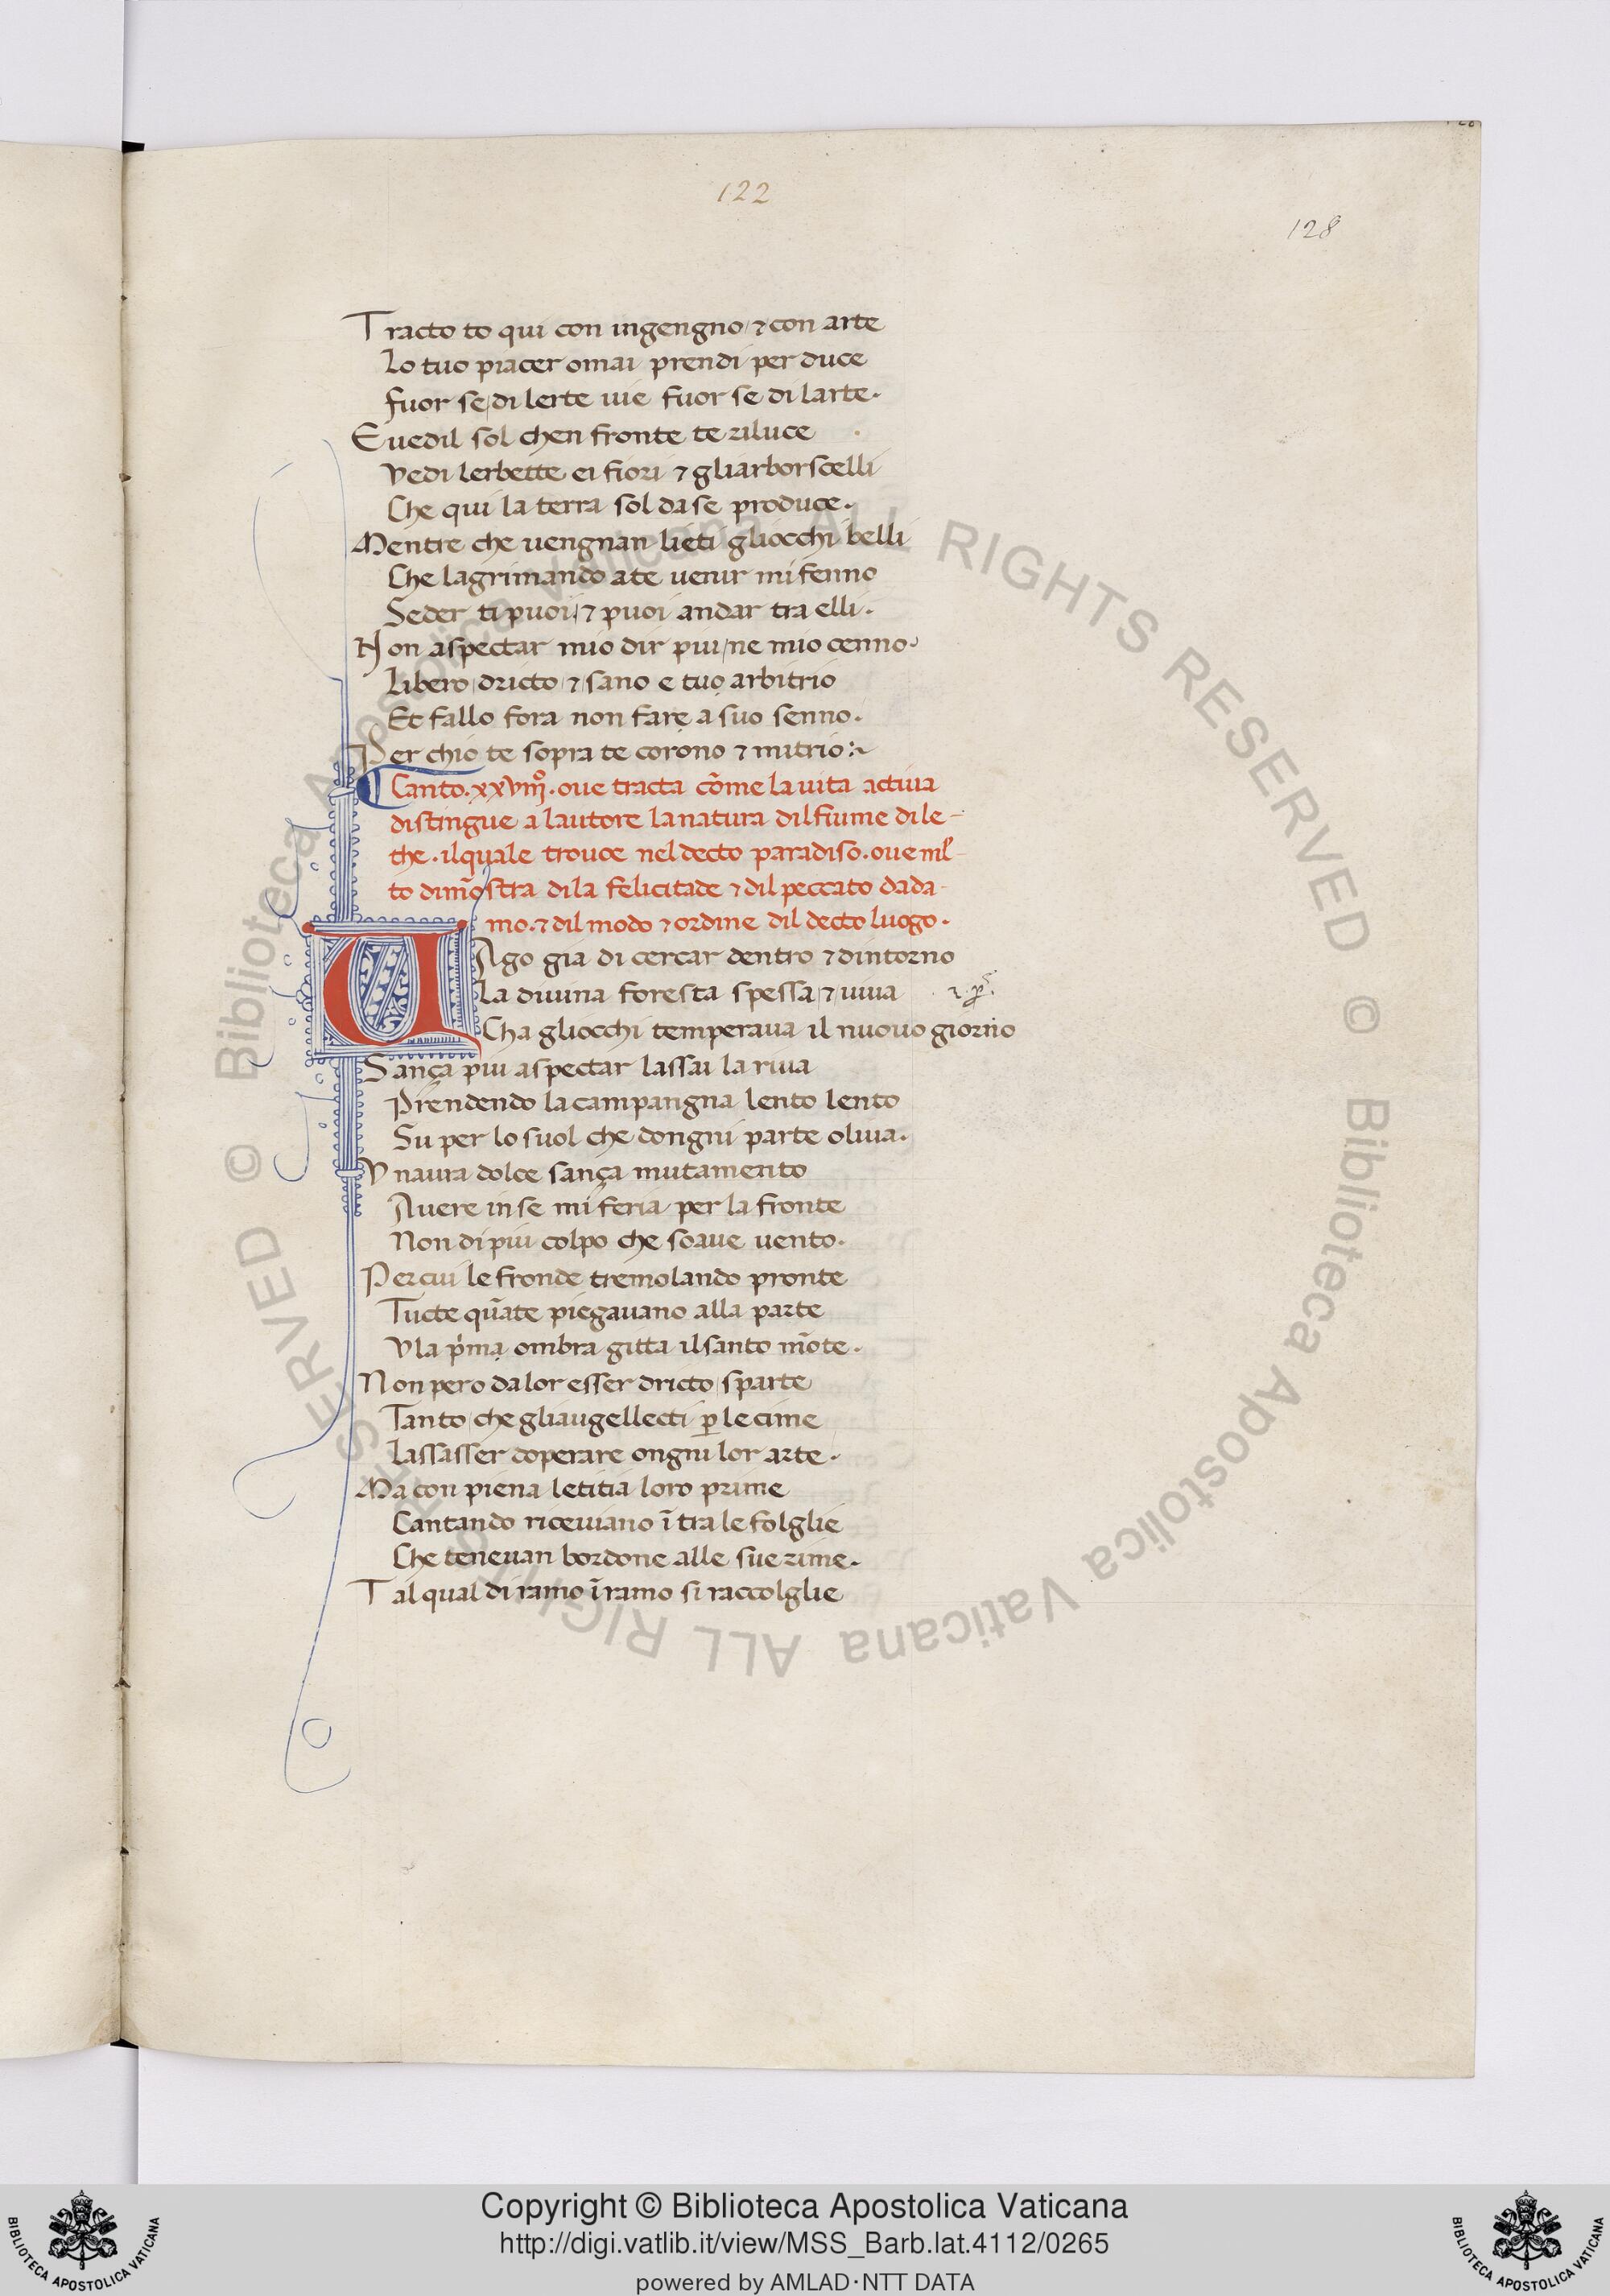 122
128
Tracto to qui con ingengno ⁊ con arte
Lo tuo piacer omai prendi per duce
fuor se di lerte uie fuor se di larte.
E uedil sol chen fronte te riluce
Vedi lerbette ei fiori ⁊ gliarborscelli
Che qui la terra sol dase produce.
Mentre che uengnan lieti gliocchi belli
Che lagrimando ate uenir mi fenno
Seder ti puoi ⁊ puoi andar tra elli.
Non aspectar mio dir piu ne mio cenno
Libero dricto ⁊ sano e tuo arbitrio
Et fallo fora non fare a suo senno.
Per chio te sopra te corono ⁊ mitrio:~
Canto. xxviijº. oue tracta cōme la uita actiua
distingue a lautore la natura dil fiume di le-
the. ilquale trouoe nel decto paradiso. oue ml̅-
to dim̅ostra di la felicitade ⁊ dil peccato dada-
mo. ⁊ dil modo ⁊ ordine dil decto luogo.
VAgo gia di cercar dentro ⁊ dintorno
La diuina foresta spessa ⁊ uiua
Cha gliocchi temperaua il nuouo giorno
Sança piu aspectar lassai la riua
Prendendo la campangna lento lento
Su per lo suol che dongni parte oliua.
Vnaura dolce sança mutamento
Auere in se mi feria per la fronte
Non di piu colpo che soaue uento.
Per cui le fronde tremolando pronte
Tucte qūate piegauano alla parte
Vla p̍ma ombra gitta il santo mōte.
Non pero dalor esser dricto sparte
Tanto che gliaugellecti ꝑ le cime
Lassasser doperare ongni lor arte.
Ma con piena letitia loro prime
Cantando riceuiano ī tra le folglie
Che teneuan bordone alle sue rime.
Tal qual di ramo ī ramo si raccolglie
© Biblioteca Apostolica Vaticana ALL RIGHTS RESERVED © Biblioteca Apostolica Vaticana ALL RIGHTS RESERVED
Copyright © Biblioteca Apostolica Vaticana
http://digi.vatlib.it/view/MSS_Barb.lat.4112/0265
powered by AMLAD·NTT DATA
BIBLIOTECA APOSTOLICA VATICANA
BIBLIOTECA APOSTOLICA VATICANA